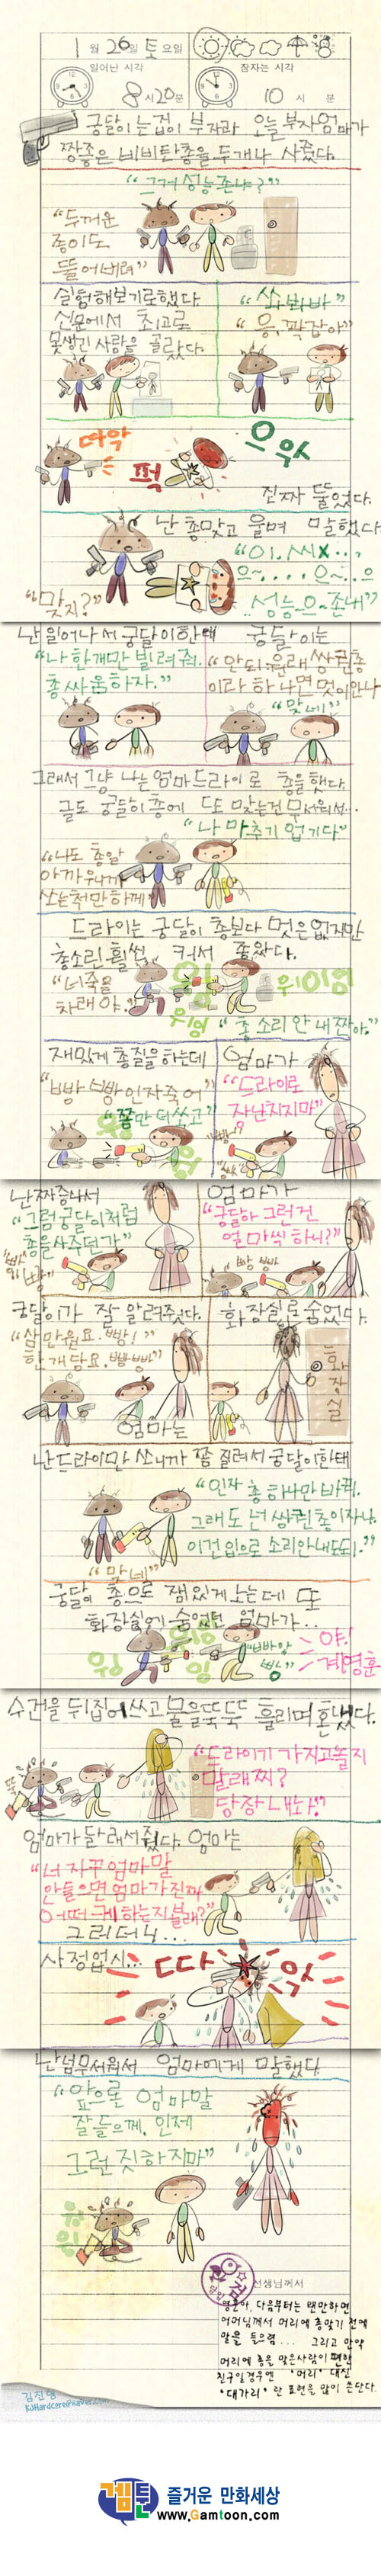 1 월 26 일 토 요일
일어난 시각
8 시 20 분
잠자는 시각
10 시 분
궁달이는 겁이 부자라 오늘 부자엄마가
짱좋은 비비탄총을 두개나 사줬다.
"그거 성능존나?"
"두꺼운
종이도
뚫어버려"
실험해보기로했다.
신문에서 최고로
못생긴 사람을 골랐다.
"쏴봐바"
"응, 꽉잡아"
따악
퍽
으악
진짜 뚫었다.
난 총맞고 울며 말했다
"아, 씨x...,
으~.... 으~..으
성능-으-존내"
"맞지?"
난 일어나서 궁달이한테
"나 한개만 빌려줘.
총싸움하자."
궁달이는
"안되 원래 쌍권총
이라 하나면 멋이안나"
"맞네"
그래서 그냥 나는 엄마드라이로 총을했다.
글도 궁달이총에 또 맞는건 무서워서..
"나 마추기 업기다"
"나도 총알
아까우니까
쏘는척만하께"
드라이는 궁달이 총보다 멋은 없지만
총소린 훨씬 커서 좋았다.
"너죽을
차래야."
위잉
위이잉
위잉
"총 소리 안 내짠아."
재밌게 총질을하는데
"빵 빵 인자죽어"
"쫌만 더쏘고"
위잉
잉
엄마가
"드라이로
자난치지마"
빵
난 짜증나서
"그럼 궁달이처럼
총을사주던가"
빵
위
빵
엄마가
"궁달아 그런건
얼마씩 하니?"
빵 빵
궁달이가 잘 알려줫다.
"삼만원요. 빵!
한개당요. 빵빵"
엄마는
화장실로 숨었다.
화장실
난 드라이만 쏘니까 쫌 질려서 궁달이한테
"인자 총 하나만 바꿔.
그래도 넌 쌍권총이자나.
이건 입으로 소리안내도되."
"맞네"
궁달이 총으로 잼있게 노는데 또
화장실에 숨었던 엄마가..
위잉
위잉
잉
"빠바앙
빵"
야!
계영훈
수건을 뒤집어쓰고 물을뚝뚝 흘리며 혼냈다.
"드라이기 가지고놀지
말래찌?
당장 내놔."
뚝
엄마가 달래서줬다. 엄마는
"너 자꾸 엄마말
안들으면 엄마가 진짜
어떠그게하는지볼래?"
그러더니...
사정없시...
따
악
난넘무서워서 엄마에게 말했다
"앞으론 엄마말
잘들으께. 인제
그런 짓하지마"
위
잉
검
선생님께서
영훈아, 다음부터는 왠만하면
어머님께서 머리에 총맞기 전에
말을 들으렴... 그리고 만약
머리에 총을 맞은사람이 편한
친구일경우엔 '머리' 대신
'대가리' 란 표현을 많이 쓴단다.
김진영
KJHardcore@naver.com
겜툰 즐거운 만화세상
www.Gamtoon.com